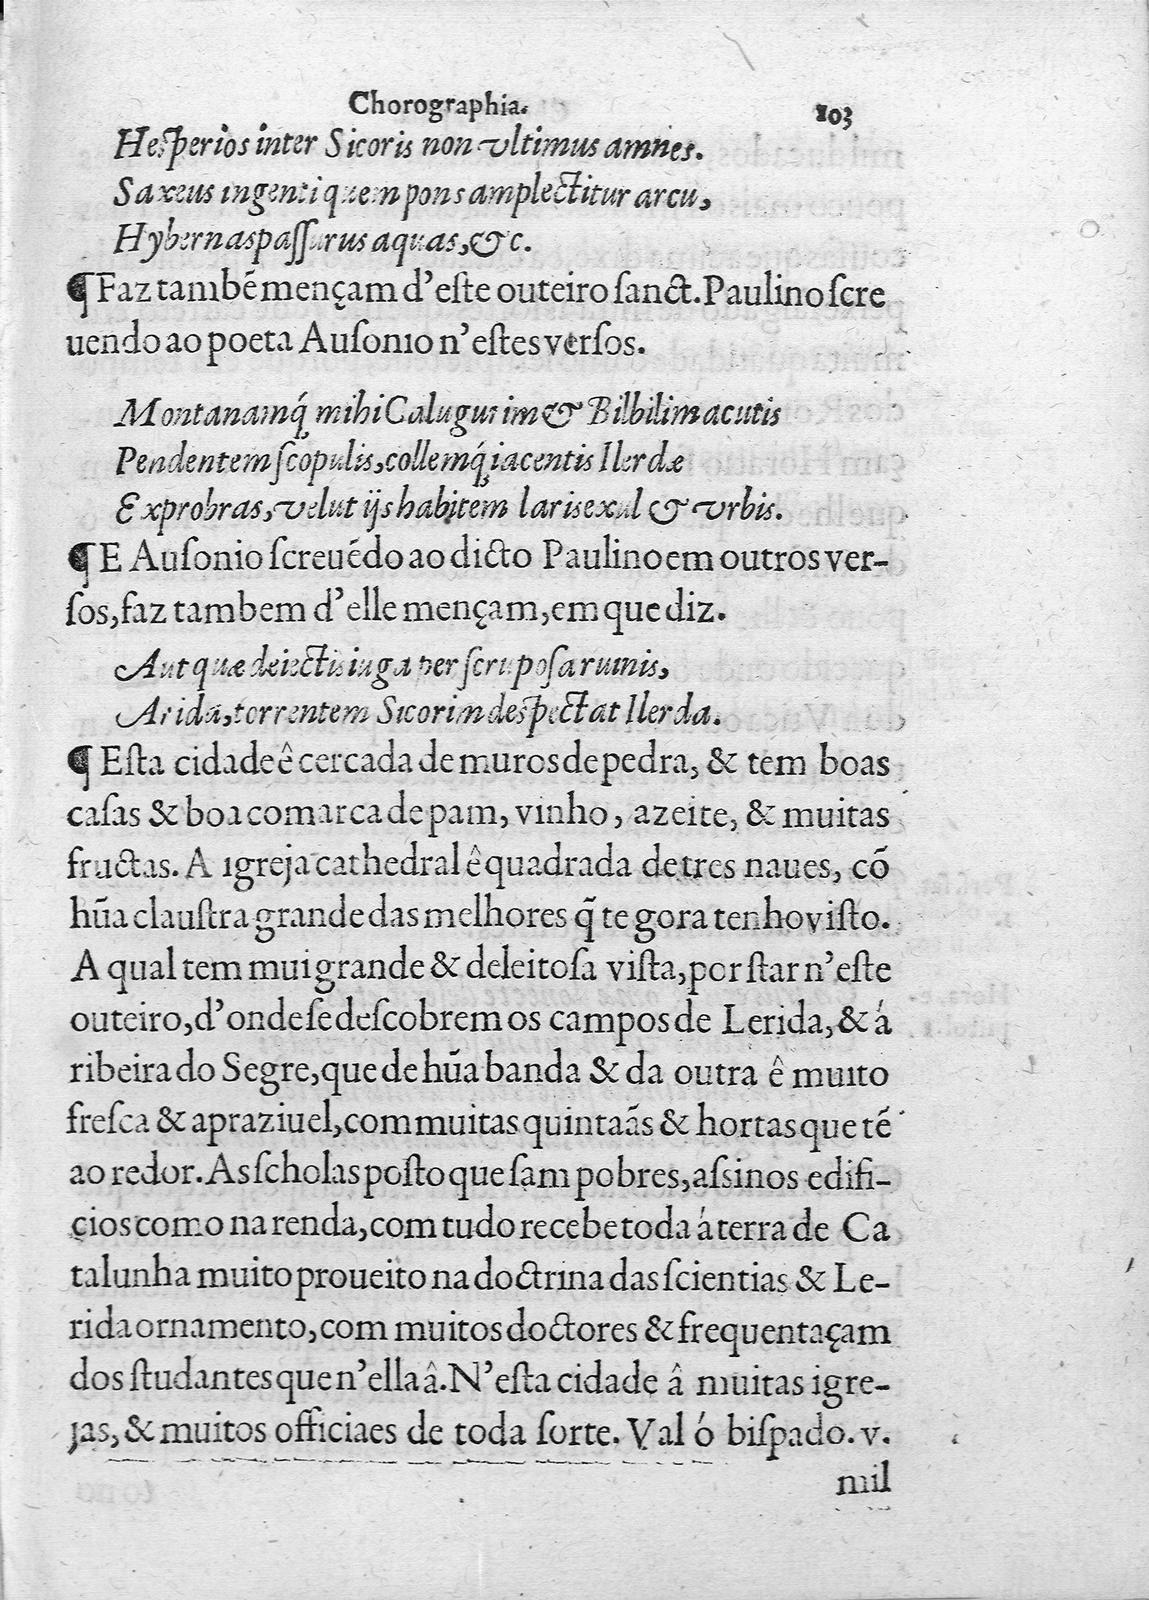 Chorographia. 103
Hesperios inter Sicoris non vltimus amnes.
Saxeus ingenti quem pons amplectitur arcu,
Hybernas paſſurus aquas, &c.
¶ Faz tambẽ mençam d'eſte outeiro ſanct. Paulino ſcre
uendo ao poeta Auſonio n'eſtes verſos.
Montanamq́; mihi Calugurim & Bilbilim acutis
Pendentem ſcopulis, collemq́; iacentis Ilerdæ
Exprobras, velut ijs habitem laris exul & vrbis.
¶ E Auſonio ſcreuẽdo ao dicto Paulino em outros ver-
ſos, faz tambem d'elle mençam, em que diz.
Aut quæ deiectis iuga per ſcrupoſa ruinis,
Arida, torrentem Sicorim deſpectat Ilerda.
¶ Eſta cidade ê cercada de muros de pedra, & tem boas
caſas & boa comarca de pam, vinho, azeite, & muitas
fructas. A igreja cathedral ê quadrada de tres naues, cõ
hũa clauſtra grande das melhores q̃ te gora tenho viſto.
A qual tem mui grande & deleitoſa viſta, por ſtar n'eſte
outeiro, d'onde ſe deſcobrem os campos de Lerida, & á
ribeira do Segre, que de hũa banda & da outra ê muito
freſca & apraziuel, com muitas quintaãs & hortas que tẽ
ao redor. As ſcholas poſto que ſam pobres, aſsi nos edifi-
cios como na renda, com tudo recebe toda á terra de Ca
talunha muito proueito na doctrina das ſcientias & Le-
rida ornamento, com muitos doctores & frequentaçam
dos ſtudantes que n'ella â. N'eſta cidade â muitas igre-
jas, & muitos officiaes de toda ſorte. Val ó biſpado. v.
mil